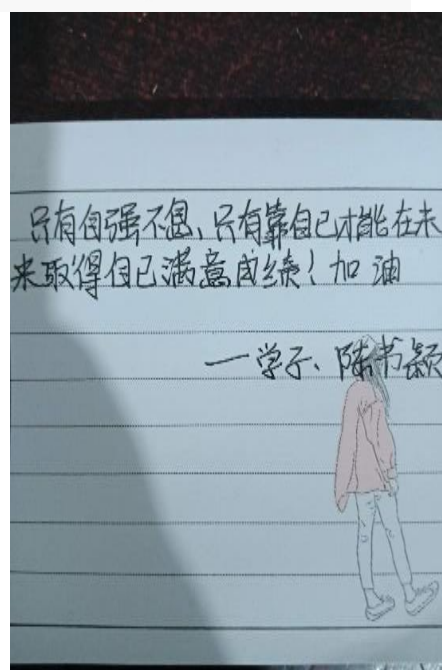 只有自强不息、只有靠自己才能在未
来取得自己满意成绩！加油
一学子、陈书颖